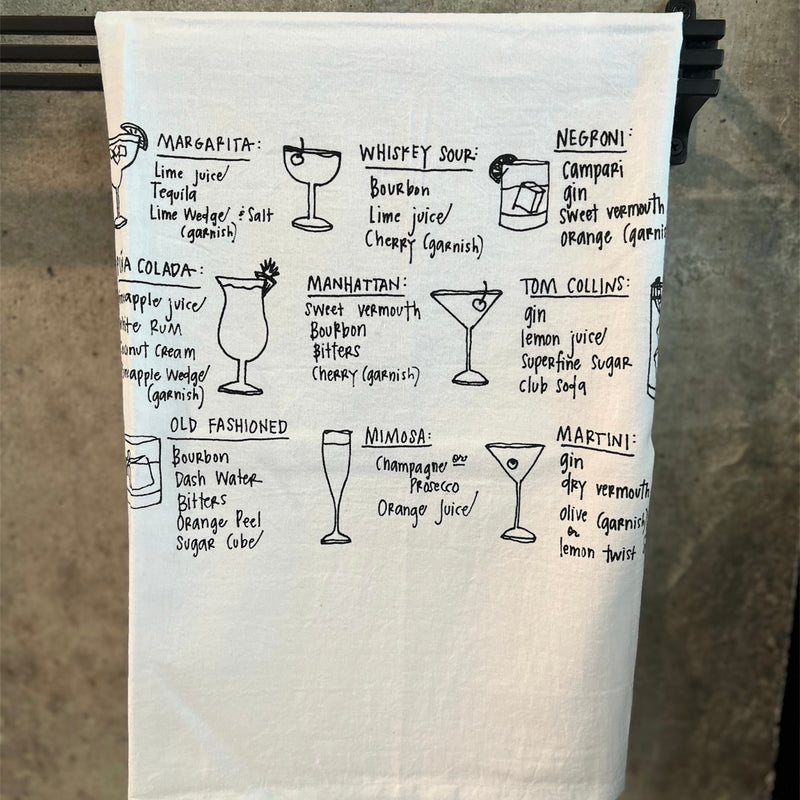 MARGARITA:
Lime juice
Tequila
Lime Wedge & Salt
(garnish)
WHISKEY SOUR:
Bourbon
Lime juice
Cherry (garnish)
NEGRONI:
Campari
gin
sweet vermouth
orange (garni
COLADA:
juice
RUM
Cream
Wedge
(garnish)
MANHATTAN:
sweet vermouth
Bourbon
Bitters
Cherry (garnish)
TOM COLLINS:
gin
lemon juice
superfine sugar
club soda
OLD FASHIONED
Bourbon
Dash Water
Bitters
Orange Peel
Sugar Cube
MIMOSA:
Champagne or
Prosecco
Orange Juice
MARTINI:
gin
dry vermouth
olive (garnish
or
lemon twist